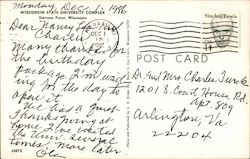 Monday, Dec. 1, 1986
WISCONSIN STATE UNIVERSITY COMPLEX
Stevens Point, Wisconsin
Dear Nancy &
Charlie
Many thanks for
the birthday
package I'm
for the day to
open it.
We has a nice
Thanksgiving at
home I've visited
the several
times. more later
Sinclair Lewis
14
POST CARD
Dr. and Mrs. Charles Turok
1201 S. Court House Rd.
Apt. 809
Arlington, Va
22204